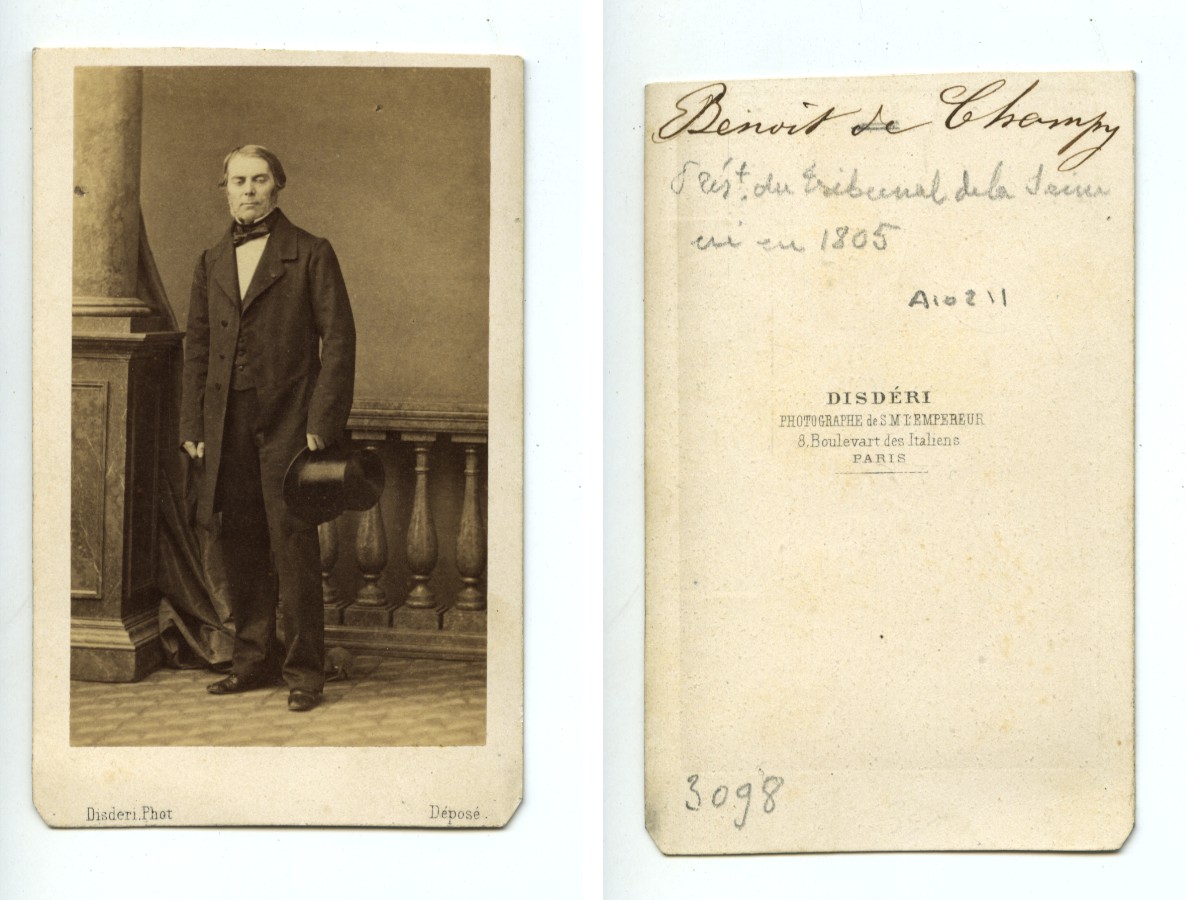 Disderi.Phot
Déposé.
Benoit de Champy
Prést. du tribunal de la Seine
en 1805
A10211
DISDÉRI
PHOTOGRAPHE de S.M L'EMPEREUR
8, Boulevart des Italiens
PARIS
3098